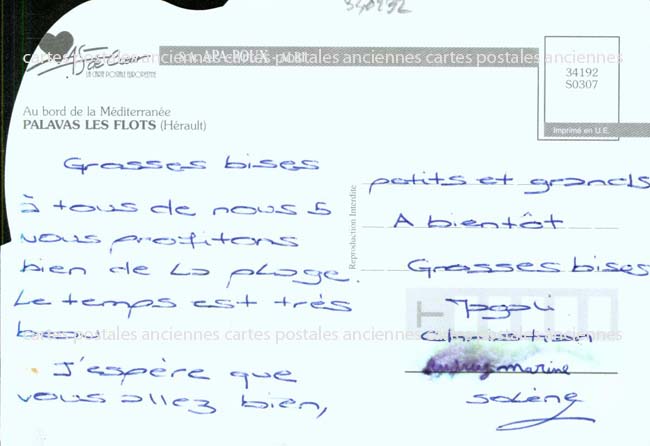 cartes postales anciennes cartes postales anciennes cartes postales anciennes
As de Coeur
LA CARTE POSTALE EUROPEENNE
S.A. APA-POUX - ALBI
34192
S0307
Imprimé en U.E.
Au bord de la Méditerranée
PALAVAS LES FLOTS (Hérault)
Reproduction Interdite
Grosses bises
à tous de nous 5
vous profitons
bien de la plage.
Le temps est très
beau
J'espère que
vous allez bien,
petits et grands
A bientôt
Grosses bises
Magali
Christian
Audrey marine
Solène
cartes postales anciennes cartes postales anciennes cartes postales anciennes